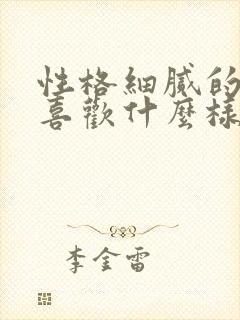 性格細膩的
喜歡什麼樣
李金雷